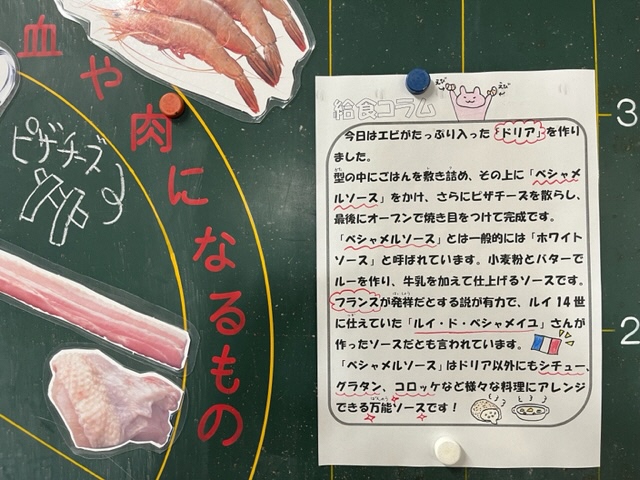 血や肉になるもの
ピザチーズ
えび
えび
給食コラム
今日はエビがたっぷり入った「ドリア」を作り
ました。
型の中にごはんを敷き詰め、その上に「ベシャメ
ルソース」をかけ、さらにピザチーズを散らし、
最後にオーブンで焼き目をつけて完成です。
「ベシャメルソース」とは一般的には「ホワイト
ソース」と呼ばれています。小麦粉とバターで
ルーを作り、牛乳を加えて仕上げるソースです。
フランスが発祥だとする説が有力で、ルイ14世
に仕えていた「ルイ・ド・ベシャメイユ」さんが
作ったソースだとも言われています。
「ベシャメルソース」はドリア以外にもシチュー、
グラタン、コロッケなど様々な料理にアレンジ
できる万能ソースです！
3
2